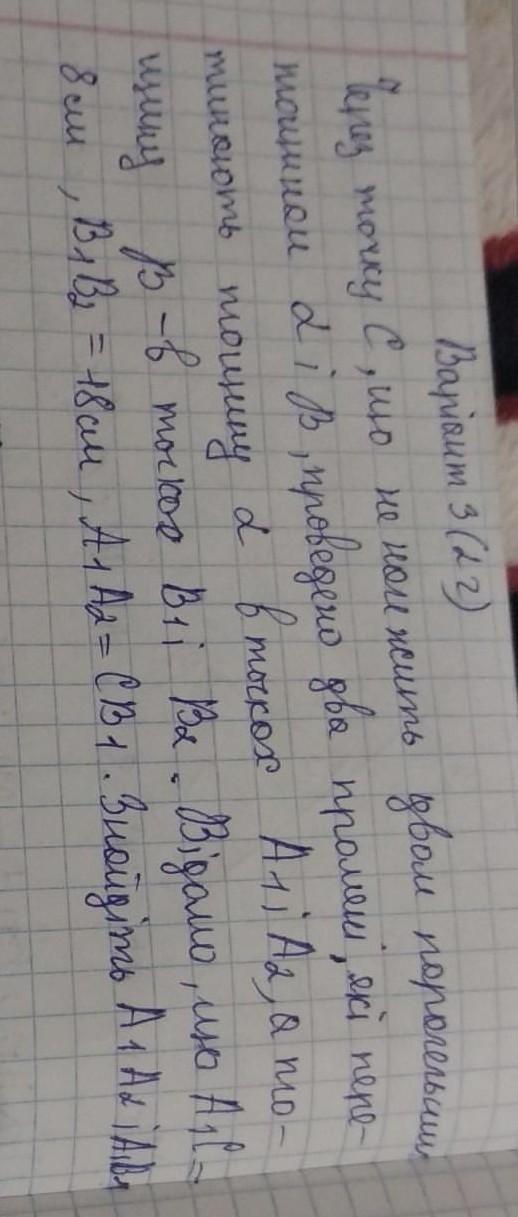 Варіант 3 (2 г)
Через точку С, що не належить двом паралельним
площинам α і β, проведено два промені, які пере-
тинають площину α в точках А1 і А2, а пло-
щину β - в точках В1 і В2. Відомо, що А1С =
8 см, В1В2 = 18 см, А1А2 = СВ1. Знайдіть А1А2 і А1В1